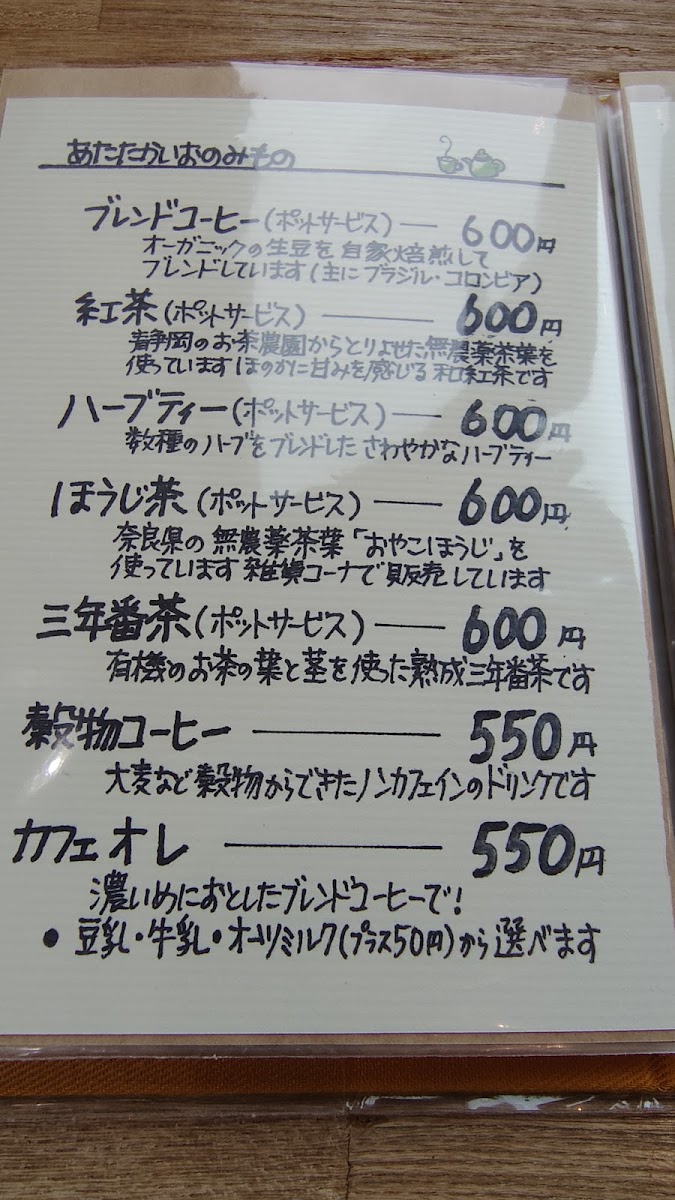 あたたかいおのみもの
ブレンドコーヒー(ポットサービス) — 600円
オーガニックの生豆を自家焙煎して
ブレンドしています(主にブラジル・コロンビア)
紅茶(ポットサービス) — 600円
静岡のお茶農園からとりよせた無農薬茶葉を
使っています ほのかに甘みを感じる和紅茶です
ハーブティー(ポットサービス) — 600円
数種のハーブをブレンドした さわやかなハーブティー
ほうじ茶(ポットサービス) — 600円
奈良県の無農薬茶葉「おやこほうじ」を
使っています 雑貨コーナで販売しています
三年番茶(ポットサービス) — 600円
有機のお茶の葉と茎を使った熟成三年番茶です
穀物コーヒー — 550円
大麦など穀物からできたノンカフェインのドリンクです
カフェオレ — 550円
濃いめにおとしたブレンドコーヒーで!
• 豆乳・牛乳・オーツミルク(プラス50円)から選べます